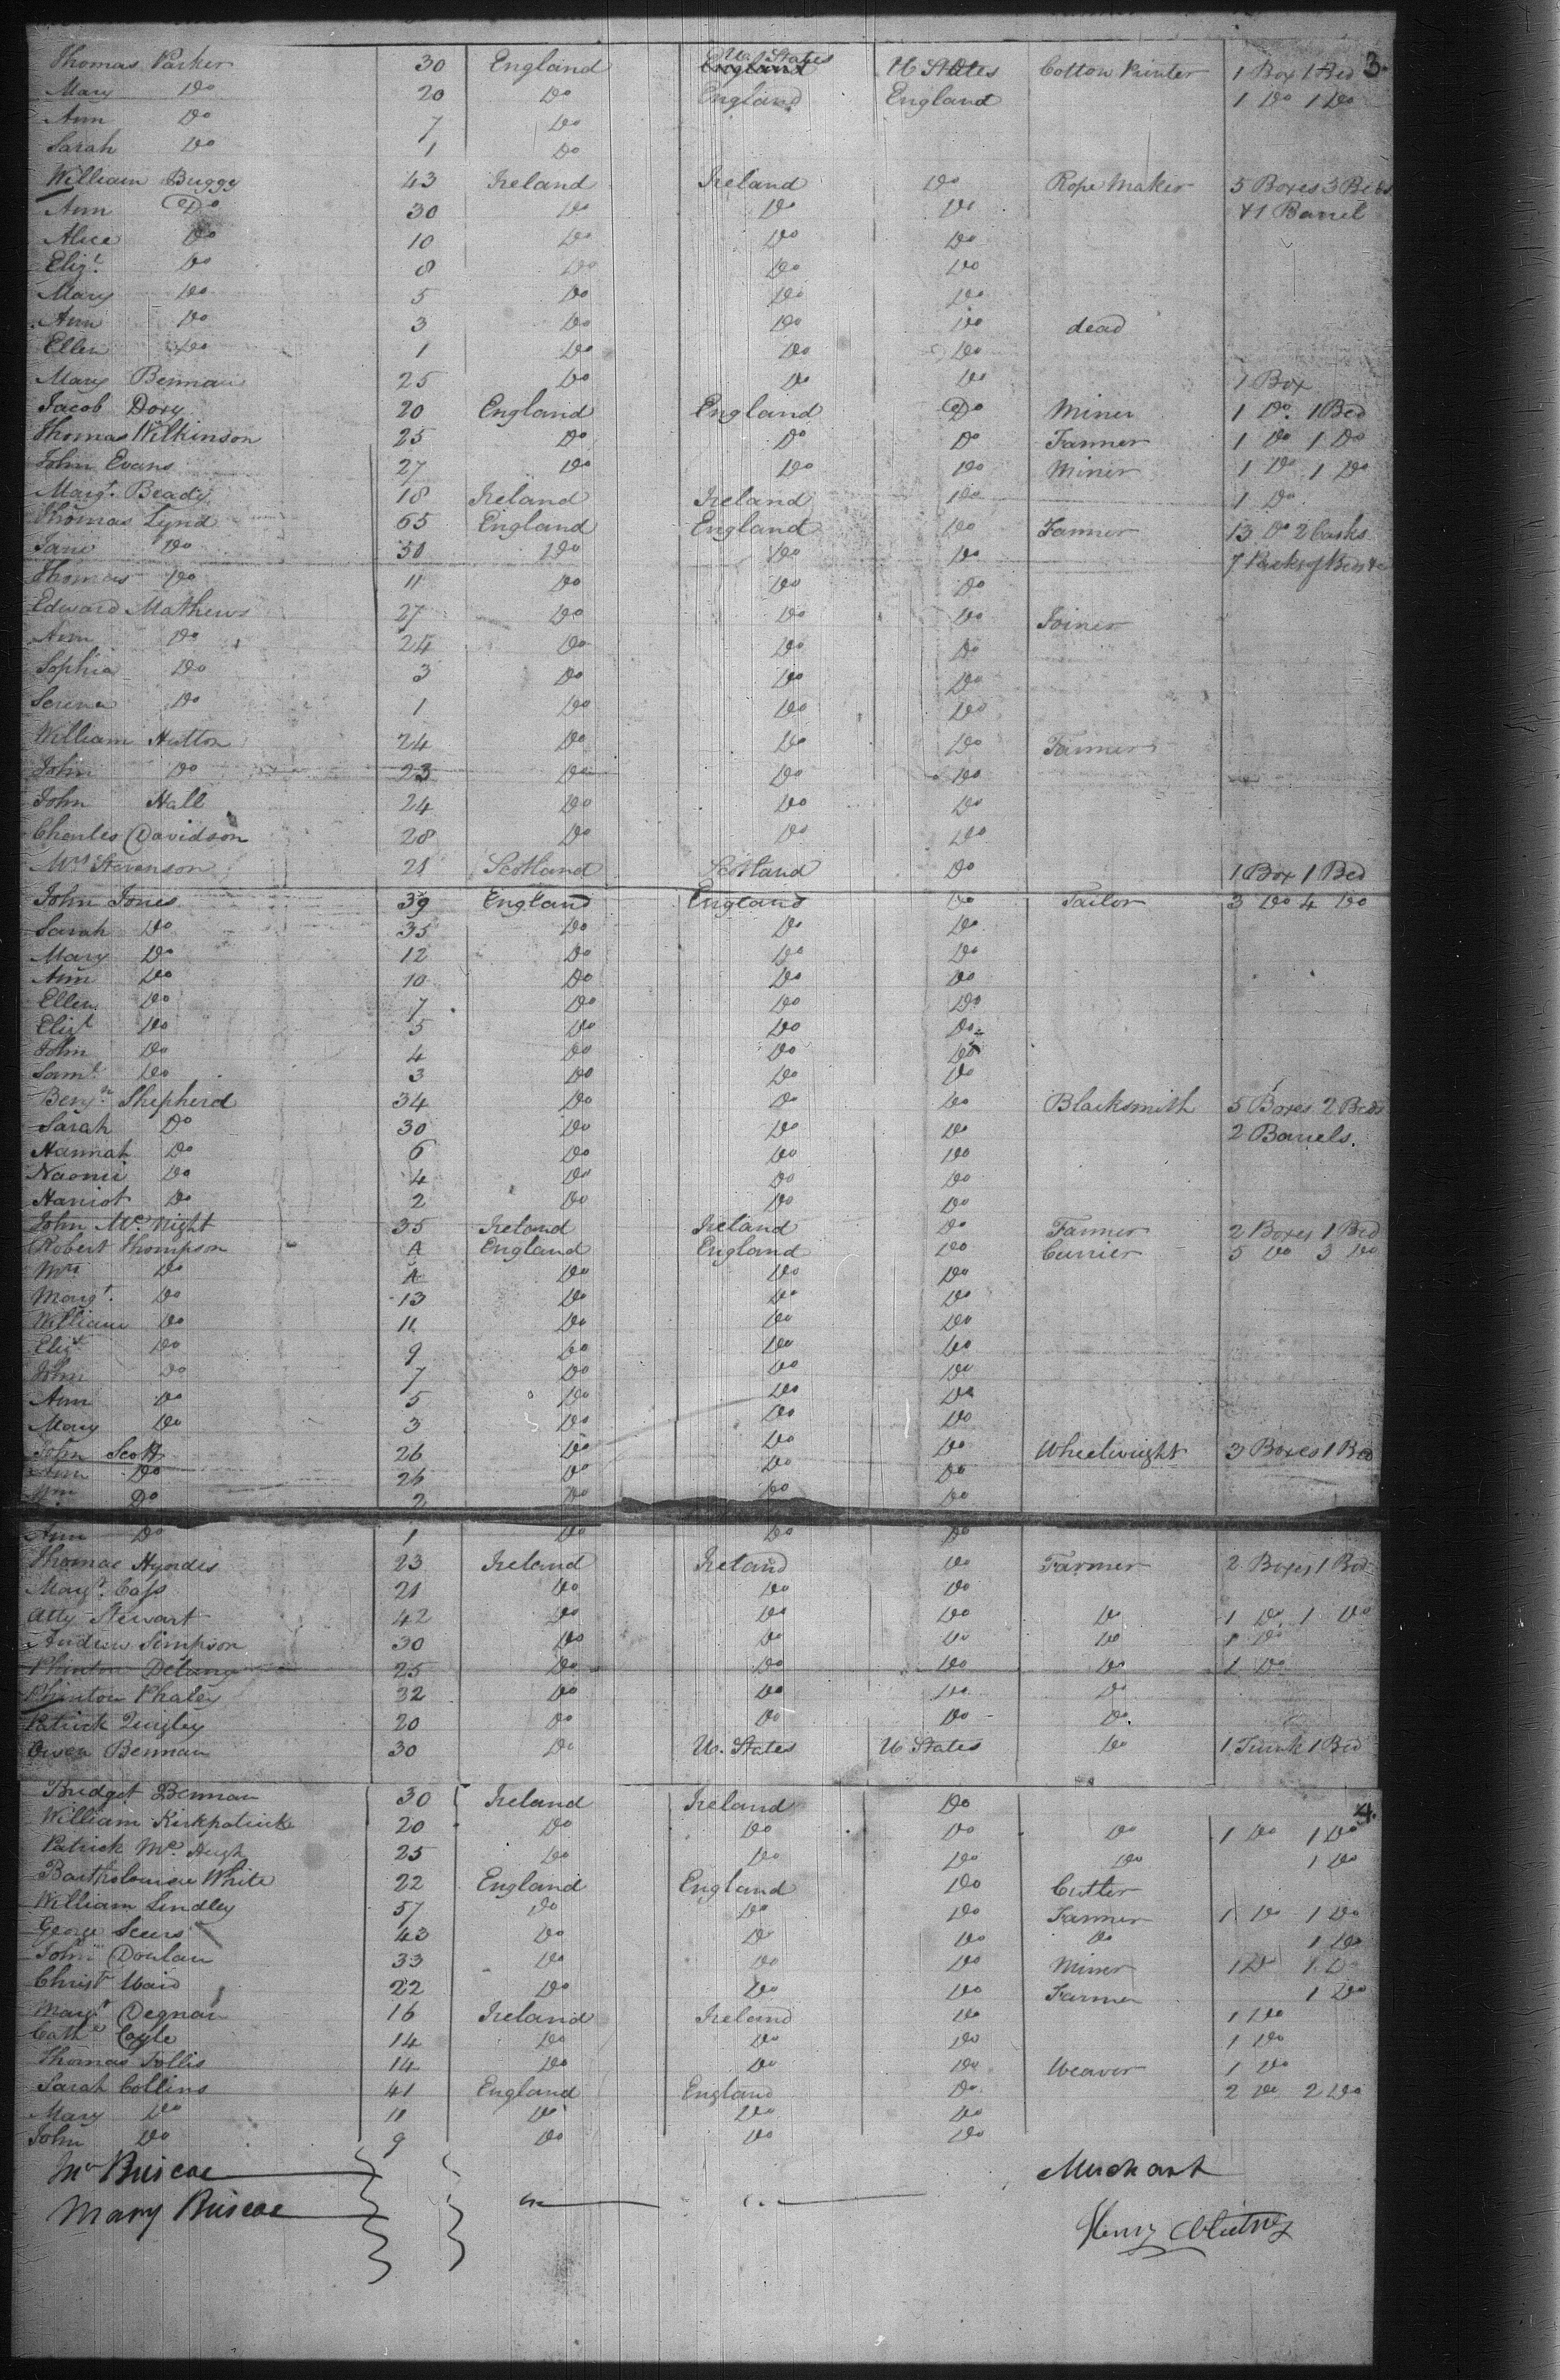 3
Thomas Parker 30 England U. States England U States Cotton Printer 1 Box 1 Bed
Mary Do 20 Do England England 1 Do 1 Do
Ann Do 7 Do
Sarah Do 1 Do
William Buggy 43 Ireland Ireland Do Rope Maker 5 Boxes 3 Beds
Ann Do 30 Do Do Do & 1 Barrel
Alice Do 10 Do Do Do
Elizt. Do 8 Do Do Do
Mary Do 5 Do Do Do
Ann Do 3 Do Do Do dead
Ellen Do 1 Do Do Do
Mary Bennan 25 Do Do Do 1 Box
Jacob Doxy 20 England England Do Miner 1 Do. 1 Bed
Thomas Wilkinson 25 Do Do Do Farmer 1 Do 1 Do
John Evans 27 Do Do Do Miner 1 Do 1 Do
Margt. Beady 18 Ireland Ireland Do 1 Do
Thomas Lynd 65 England England Do Farmer 13 Do 2 Casks
Jane Do 50 Do Do Do 7 Packs of Beds &c
Thomas Do 11 Do Do Do
Edward Mathews 27 Do Do Do Joiner
Ann Do 24 Do Do Do
Sophia Do 3 Do Do Do
Serena Do 1 Do Do Do
William Hutton 24 Do Do Do Farmer
John Do 23 Do Do Do
John Hall 24 Do Do Do
Charles Davidson 28 Do Do Do
Mrs Stevenson 21 Scotland Scotland Do 1 Box 1 Bed
John Jones 39 England England Do Tailor 3 Do 4 Do
Sarah Do 35 Do Do Do
Mary Do 12 Do Do Do
Ann Do 10 Do Do Do
Ellen Do 7 Do Do Do
Elizt Do 5 Do Do Do
John Do 4 Do Do Do
Saml. Do 3 Do Do Do
Benjn. Shepherd 34 Do Do Do Blacksmith 5 Boxes 2 Beds
Sarah Do 30 Do Do Do 2 Barrels.
Hannah Do 6 Do Do Do
Naomi Do 4 Do Do Do
Harriot Do 2 Do Do Do
John Mc. Night 35 Ireland Ireland Do Farmer 2 Boxes 1 Bed
Robert Thompson A England England Do Currier 5 Do 3 Do
Mrs Do A Do Do Do
Margt. Do 13 Do Do Do
William Do 11 Do Do Do
Elizt Do 9 Do Do Do
John Do 7 Do Do Do
Ann Do 5 Do Do Do
Mary Do 3 Do Do Do
John Scott 26 Do Do Do Wheelwright 3 Boxes 1 Bed
Ann Do 26 Do Do Do
Wm Do 2 Do Do Do
Ann Do 1 Do Do Do
Thomas Hyndes 23 Ireland Ireland Do Farmer 2 Boxes 1 Bed
Margt. Cass 21 Do Do Do
Atty Stewart 42 Do Do Do Do 1 Do 1 Do
Andrew Simpson 30 Do Do Do Do 1 Do
Phinton Delany 25 Do Do Do Do 1 Do
Phinton Phaley 32 Do Do Do Do
Patrick Quigley 20 Do Do Do Do.
Owen Bennan 30 Do U. States U States Do 1 Trunk 1 Bed
4.
Bridget Bennan 30 Ireland Ireland Do
William Kirkpatrick 20 Do Do Do Do 1 Do 1 Do
Patrick Mc. Hugh 25 Do Do Do Do 1 Do
Bartholomew White 22 England England Do Cutler
William Lindley 57 Do Do Do Farmer 1 Do 1 Do
George Seers 43 Do Do Do Do 1 Do
John Doulan 33 Do Do Do Miner 1 Do 1 Do
Christr Waid 22 Do Do Do Farmer 1 Do
Margt Degnan 16 Ireland Ireland Do 1 Do
Cathe Coyle 14 Do Do Do 1 Do
Thomas Follis 14 Do Do Do Weaver 1 Do
Sarah Collins 41 England England Do 2 Do 2 Do
Mary Do 11 Do Do Do
John Do 9 Do Do Do
Mr Briscoe Merchant
Mary Briscoe
Henry